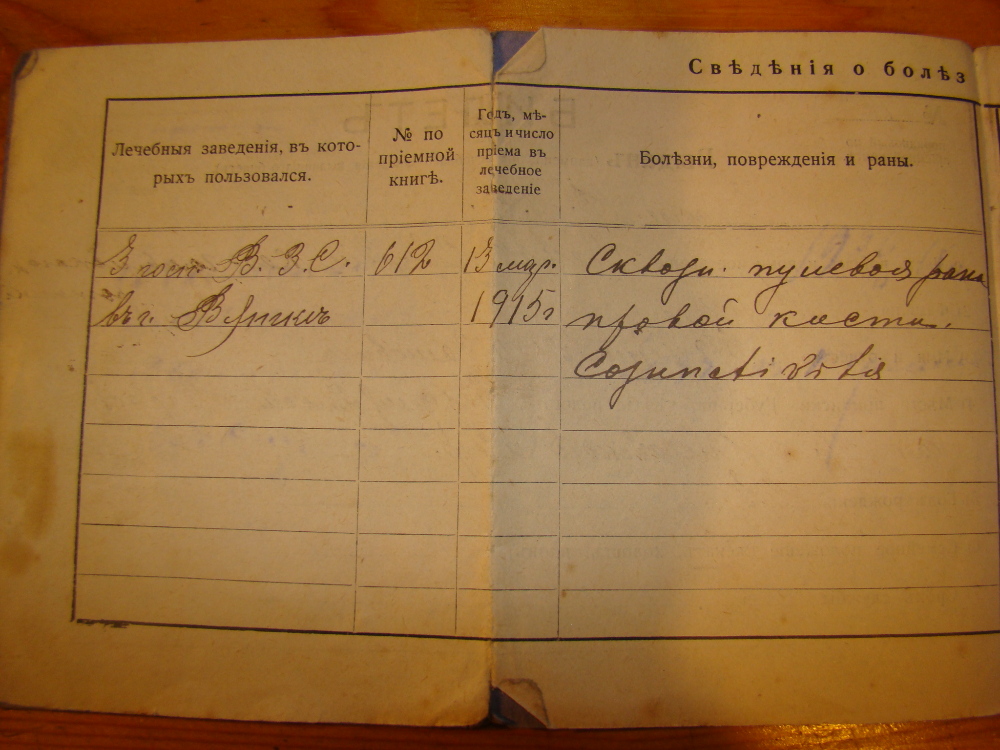 Свѣдѣнія о болѣз
Лечебныя заведенія, въ кото-
рыхъ пользовался.
№ по
пріемной
книгѣ.
Годъ, мѣ-
сяцъ и число
пріема въ
лечебное
заведеніе
Болѣзни, поврежденія и раны.
3 госп. В. З. С.
612
13 мар.
Сквозн. пулевая рана
въ г.
1915 г
правой кисти.